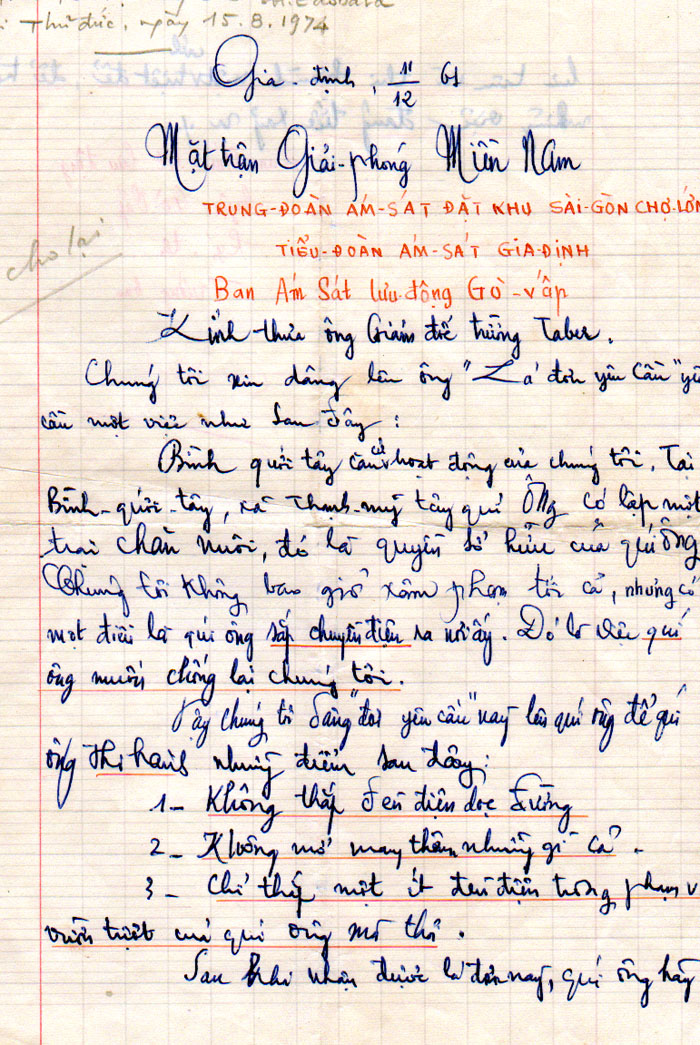 Thủ đức, ngày 15.8.1974
Gia-định, 11/12 61
Mặt trận Giải-phóng Miền Nam
TRUNG-ĐOÀN ÁM-SÁT ĐẶT KHU SÀI-GÒN CHỢ-LỚN
TIỂU-ĐOÀN ÁM-SÁT GIA-ĐỊNH
cho lại
Ban Ám Sát lưu-động Gò-vấp
Kính-thưa ông Giám đốc trường Taber.
Chúng tôi xin dâng lên ông "Lá đơn yêu cầu" yê
cầu một việc như sau đây :
Bình quới tây cần hoạt động của chúng tôi. Tại
Bình-quới-tây, xã Thạnh-mỹ tây quí Ông có lập một
trai chăn nuôi, đó là quyền sở hữu của quí ông
Chúng tôi không bao giờ xâm phạm tới cả, nhưng có
một điều là quí ông sắp chuyền điện ra nơi ấy. Đó là việc quí
ông muốn chống lại chúng tôi.
Vậy chúng tôi dâng "đơn yêu cầu" nay lên quí ông để quí
ông thi hành những điểm sau đây:
1- Không thắp đèn điện dọc đường
2- Không mở may những gì cả.
3- Chỉ thắp một ít đèn điện trong phạm v
của quí ông mà thôi.
Sau khi nhận được lá đơn nay, quí ông hãy